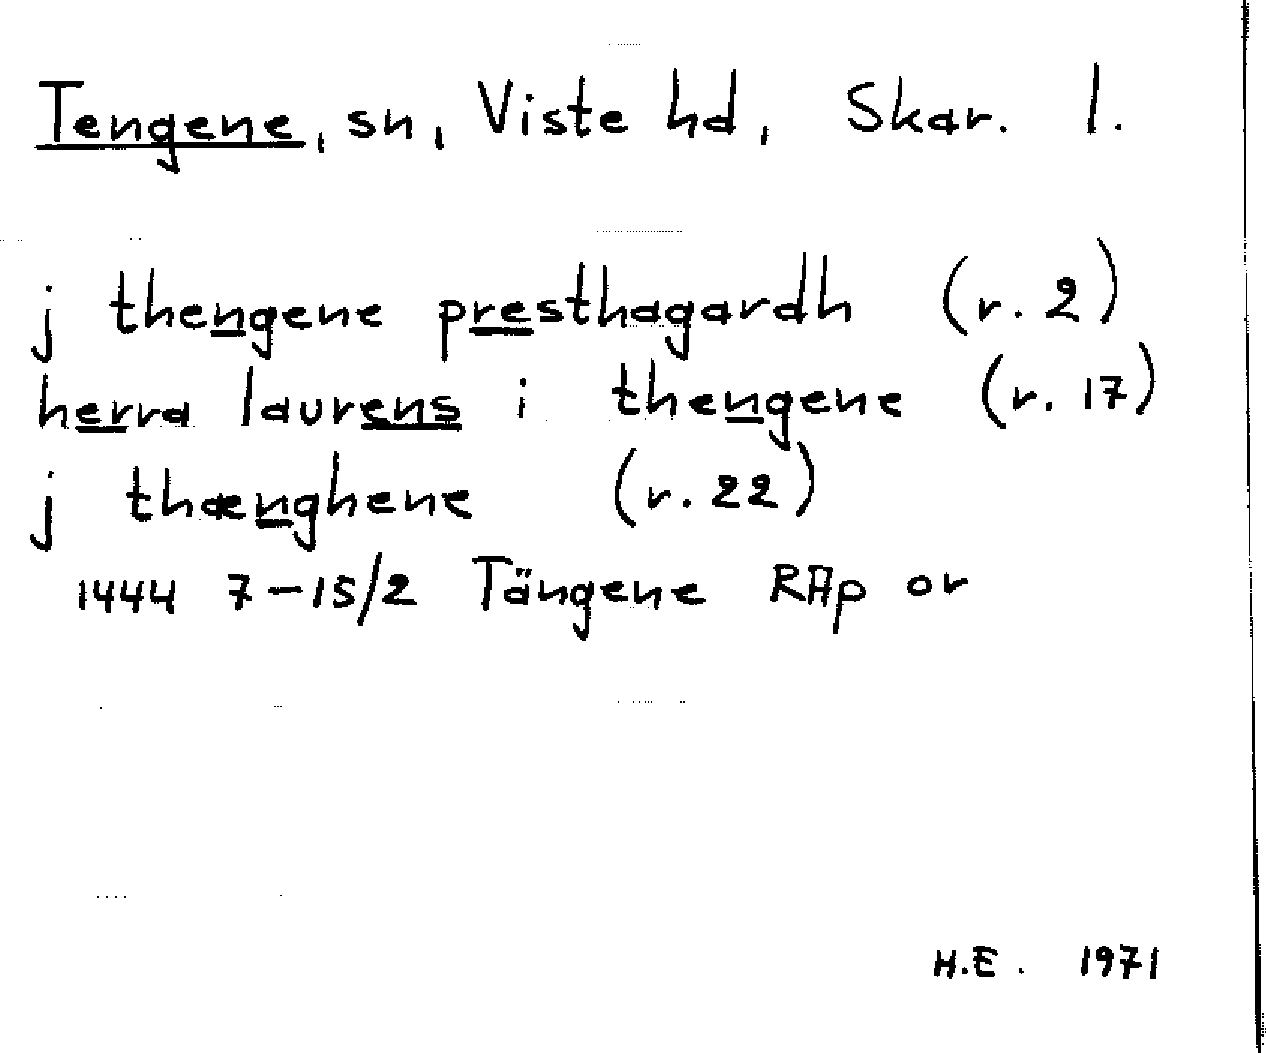 Tengene, sn, Viste hd, Skar. l.
j thengene presthagardh (r. 2)
herra laurens i thengene (r. 17)
j thænghene (r. 22)
1444 7-15/2 Tängene RAp or
H.E. 1971